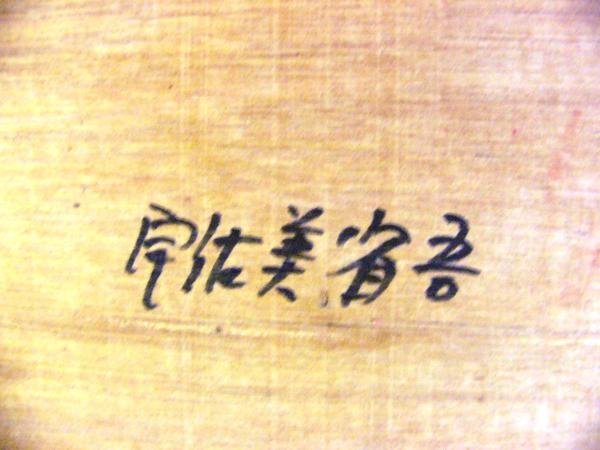 宇佐美省吾